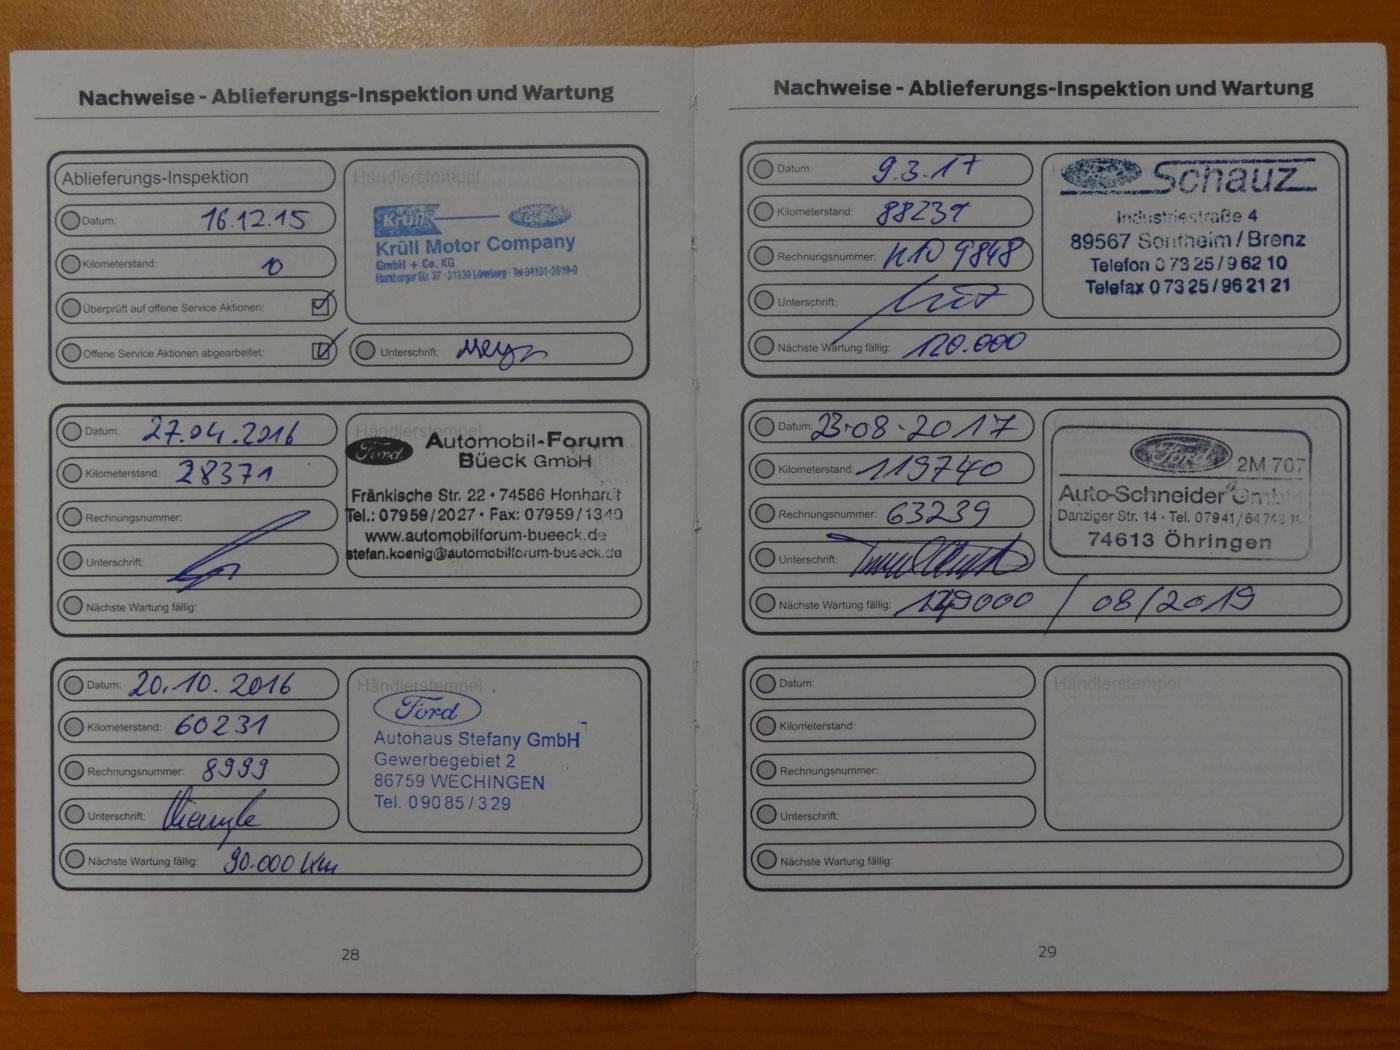 Nachweise - Ablieferungs-Inspektion und Wartung
Ablieferungs-Inspektion
Datum: 16.12.15
Kilometerstand: 10
Überprüft auf offene Service Aktionen:
Offene Service Aktionen abgearbeitet:
Händlerstempel
Krüll Ford
Krüll Motor Company
GmbH + Co. KG
Hamburger Str. 37 · 21339 Lüneburg · Tel. 04131-2019-0
Unterschrift:
Datum: 27.04.2016
Kilometerstand: 28371
Rechnungsnummer:
Unterschrift:
Nächste Wartung fällig:
Händlerstempel
Ford Automobil-Forum
Büeck GmbH
Fränkische Str. 22 • 74586 Honhardt
Tel.: 07959/2027 • Fax: 07959/1340
www.automobilforum-bueeck.de
stefan.koenig@automobilforum-bueeck.de
Datum: 20.10.2016
Kilometerstand: 60231
Rechnungsnummer: 8999
Unterschrift:
Nächste Wartung fällig: 90.000 km
Händlerstempel
Ford
Autohaus Stefany GmbH
Gewerbegebiet 2
86759 WECHINGEN
Tel. 09085/329
28
Nachweise - Ablieferungs-Inspektion und Wartung
Datum: 9.3.17
Kilometerstand: 88239
Rechnungsnummer: 9848
Unterschrift:
Nächste Wartung fällig: 120.000
Schauz
Industriestraße 4
89567 Sontheim/Brenz
Telefon 07325/96210
Telefax 07325/962121
Datum: 23.08.2017
Kilometerstand: 119740
Rechnungsnummer: 63239
Unterschrift:
Nächste Wartung fällig: / 08/2019
Ford 2M 707
Auto-Schneider GmbH
Danziger Str. 14 · Tel. 07941/
74613 Öhringen
Datum:
Kilometerstand:
Rechnungsnummer:
Unterschrift:
Nächste Wartung fällig:
Händlerstempel
29